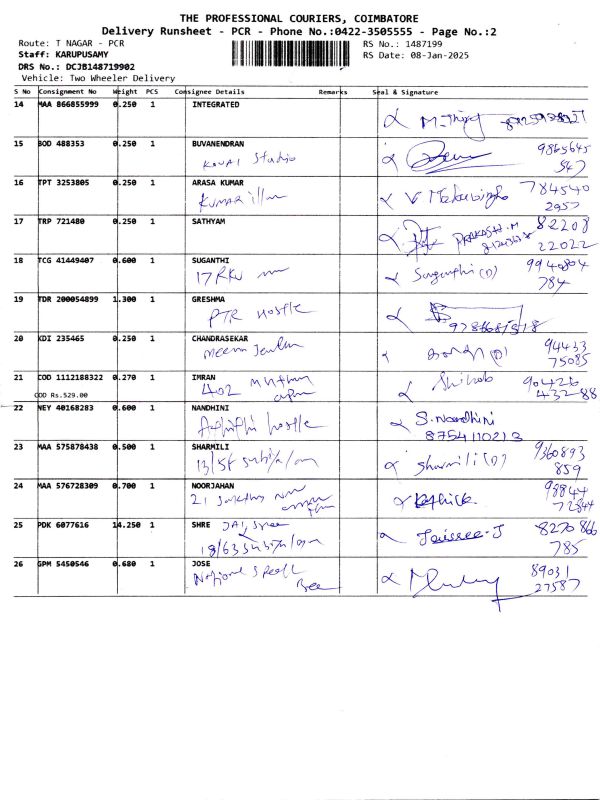 THE PROFESSIONAL COURIERS, COIMBATORE
Delivery Runsheet - PCR - Phone No.:0422-3505555 - Page No.:2
Route: T NAGAR - PCR
RS No.: 1487199
Staff: KARUPUSAMY
RS Date: 08-Jan-2025
DRS No.: DCJB148719902
Vehicle: Two Wheeler Delivery
S No Consignment No Weight PCS Consignee Details Remarks Seal & Signature
14 MAA 866855999 0.250 1 INTEGRATED
15 BOD 488353 0.250 1 BUVANENDRAN 9865645
KOVAI Studio 547
16 TPT 3253805 0.250 1 ARASA KUMAR 784540
KUMAR illam 2957
17 TRP 721480 0.250 1 SATHYAM 82208
PRAKASH.M 22022
18 TCG 41449407 0.600 1 SUGANTHI 9940804
17 RKV Suganthi (O) 784
19 TDR 200054899 1.300 1 GRESHMA
PTR Hostle
20 KDI 235465 0.250 1 CHANDRASEKAR 94433
75085
21 COD 1112188322 0.270 1 IMRAN Shihab 90426
COD Rs.529.00 402 432-88
22 NEY 40168283 0.600 1 NANDHINI S.Nandhini
hostle 8754110213
23 MAA 575878438 0.500 1 SHARMILI 9360893
13/5F Sharmili (O) 859
24 MAA 576728309 0.700 1 NOORJAHAN 98844
21 72844
25 PDK 6077616 14.250 1 SHRE JAI Shree Jaisree-J 8270866
18/63 785
26 GPM 5450546 0.680 1 JOSE 89031
National 27587